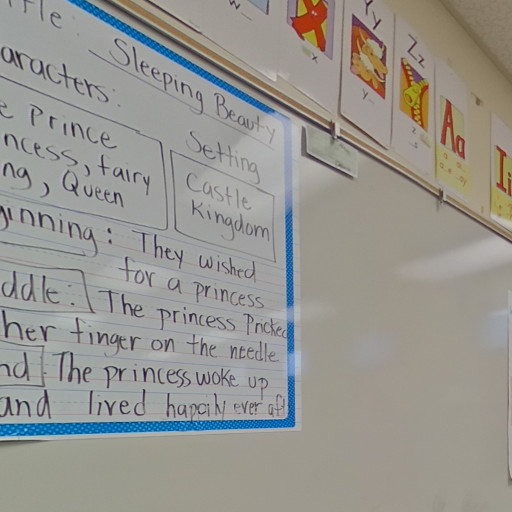 Title: Sleeping Beauty
aracters:
e Prince
ncess, fairy
ng, Queen
Setting
Castle
Kingdom
ginning: They wished
for a princess
ddle: The princess Pricked
her finger on the needle
nd The princess woke up
and lived happily ever aft
W
X
Yy
Zz
Aa
Ii